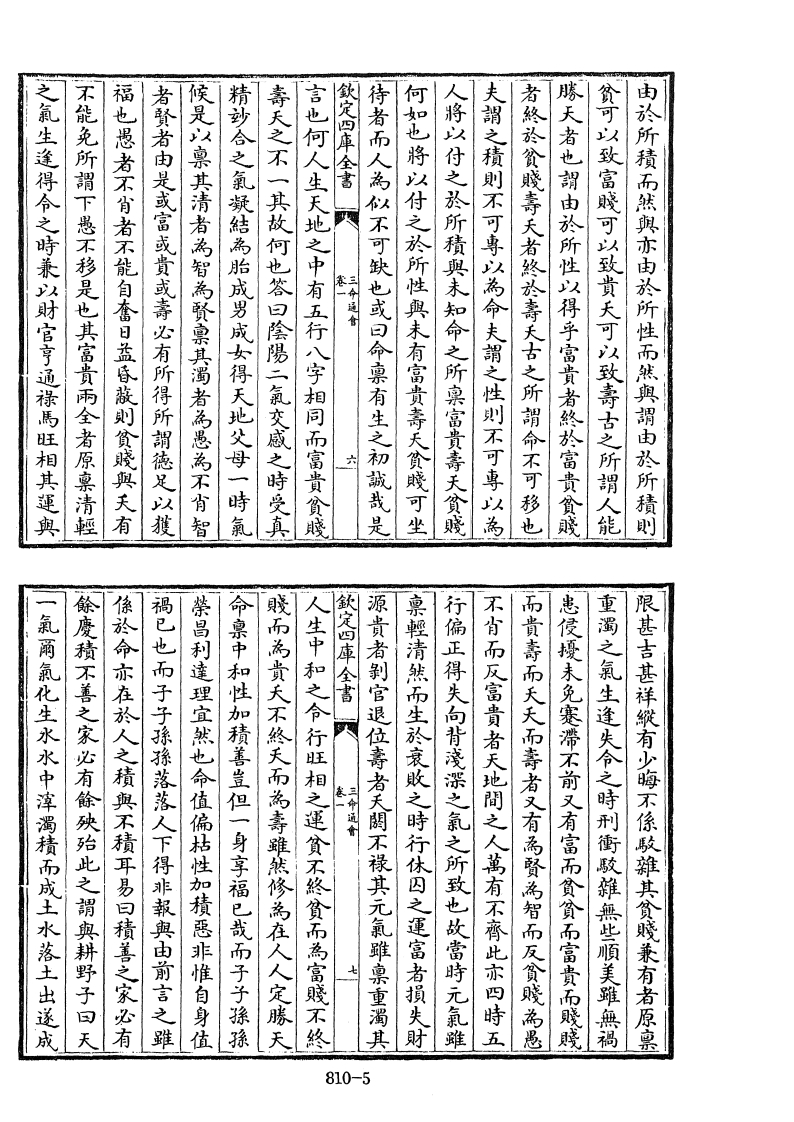 由於所積而然與亦由於所性而然與謂由於所積則
貧可以致富賤可以致貴夭可以致壽古之所謂人能
勝天者也謂由於所性以得乎富貴者終於富貴貧賤
者終於貧賤壽夭者終於壽夭古之所謂命不可移也
夫謂之積則不可專以為命夫謂之性則不可專以為
人將以付之於所積與未知命之所稟富貴壽夭貧賤
何如也將以付之於所性與未有富貴壽夭貧賤可坐
待者而人為似不可缺也或曰命稟有生之初誠哉是
欽定四庫全書
三命通會
卷一
六
言也何人生天地之中有五行八字相同而富貴貧賤
壽夭之不一其故何也答曰陰陽二氣交感之時受真
精妙合之氣凝結為胎成男成女得天地父母一時氣
候是以稟其清者為智為賢稟其濁者為愚為不肖智
者賢者由是或富或貴或壽必有所得所謂德足以獲
福也愚者不肖者不能自奮日益昏蔽則貧賤與夭有
不能免所謂下愚不移是也其富貴兩全者原稟清輕
之氣生逢得令之時兼以財官亨通祿馬旺相其運與
限甚吉甚祥縱有少晦不係駁雜其貧賤兼有者原稟
重濁之氣生逢失令之時刑衝駁雜無些順美雖無禍
患侵擾未免蹇滯不前又有富而貧貧而富貴而賤賤
而貴壽而夭夭而壽者又有為賢為智而反貧賤為愚
不肖而反富貴者天地間之人萬有不齊此亦四時五
行偏正得失向背淺深之氣之所致也故當時元氣雖
稟輕清然而生於衰敗之時行休囚之運富者損失財
源貴者剝官退位壽者夭閼不祿其元氣雖稟重濁其
欽定四庫全書
三命通會
卷一
七
人生中和之令行旺相之運貧不終貧而為富賤不終
賤而為貴夭不終夭而為壽雖然修為在人人定勝天
命稟中和性加積善豈但一身享福已哉而子子孫孫
榮昌利達理宜然也命值偏枯性加積惡非惟自身值
禍已也而子子孫孫落落人下得非報與由前言之雖
係於命亦在於人之積與不積耳易曰積善之家必有
餘慶積不善之家必有餘殃殆此之謂與耕野子曰天
一氣爾氣化生水水中滓濁積而成土水落土出遂成
810-5